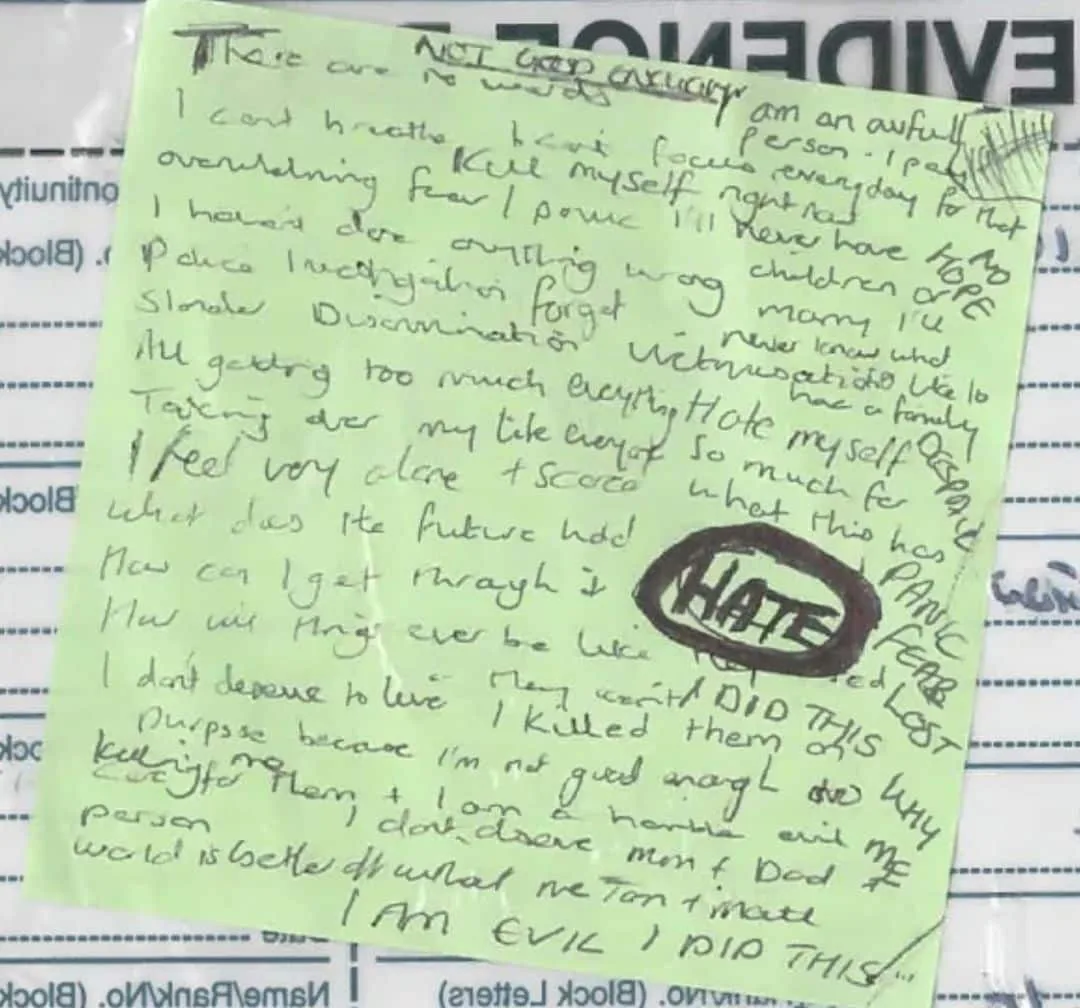 NOT GOOD ENOUGH
There are no words
I am an awful person. I pay
I cant breathe I cant focus everyday for that
Kill myself right now
overwhelming fear / panic I'll never have
NO HOPE
I haven't done anything wrong children or
Police Investigation forget marry I'll
never know what
Slander Discrimination Victimisation its like to
have a family
All getting too much everything Hate myself
DESPAIR
Taking over my life everyday so much for
I feel very alone + scared what this has
What does the future hold
PANIC
How can I get through it
HATE
FEAR
LOST
How will things ever be like they
I DID THIS
I don't deserve to live They went
I killed them on
purpose because I'm not good enough to
WHY ME
killing me
care for them + I am a horrible evil
person I dont deserve mum + Dad
world is better off without me Tom + matt
I AM EVIL I DID THIS
EVIDENCE
Continuity
(Block
Name/Rank/No. (Block
Rank/No. (Block Letters)